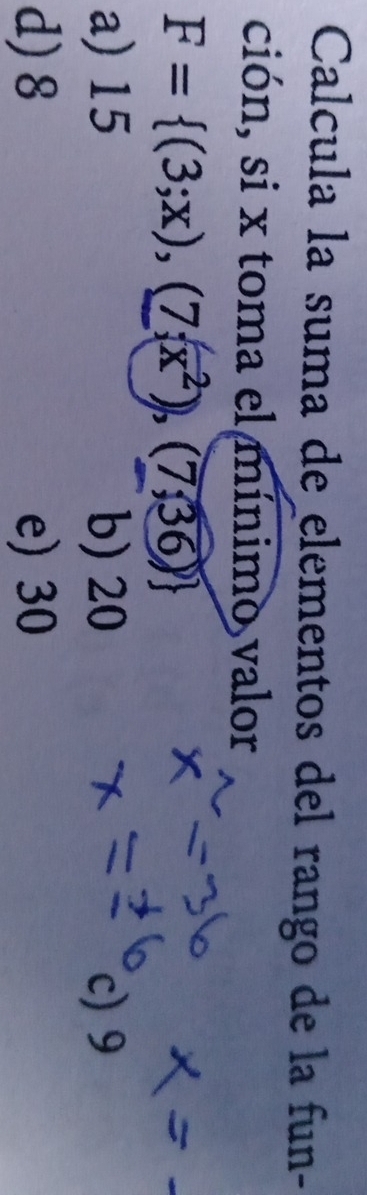 Calcula la suma de elementos del rango de la fun-
ción, si x toma el mínimo valor
F = {(3;x), (7;x²), (7;36)}
x² = 36
x = ±6
x = -
a) 15
b) 20
c) 9
d) 8
e) 30